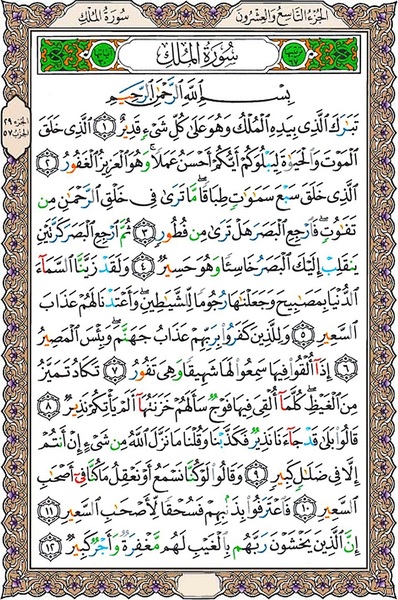 الجزء التاسع والعشرون
سورة الملك
سُورَةُ المُلْكِ
بِسْمِ ٱللَّهِ ٱلرَّحْمَٰنِ ٱلرَّحِيمِ
تَبَارَكَ ٱلَّذِي بِيَدِهِ ٱلْمُلْكُ وَهُوَ عَلَىٰ كُلِّ شَيْءٍ قَدِيرٌ ١ ٱلَّذِي خَلَقَ
ٱلْمَوْتَ وَٱلْحَيَوٰةَ لِيَبْلُوَكُمْ أَيُّكُمْ أَحْسَنُ عَمَلًا ۚ وَهُوَ ٱلْعَزِيزُ ٱلْغَفُورُ ٢
ٱلَّذِي خَلَقَ سَبْعَ سَمَٰوَٰتٍ طِبَاقًا ۖ مَّا تَرَىٰ فِي خَلْقِ ٱلرَّحْمَٰنِ مِن
تَفَٰوُتٍ ۖ فَٱرْجِعِ ٱلْبَصَرَ هَلْ تَرَىٰ مِن فُطُورٍ ٣ ثُمَّ ٱرْجِعِ ٱلْبَصَرَ كَرَّتَيْنِ
يَنقَلِبْ إِلَيْكَ ٱلْبَصَرُ خَاسِئًا وَهُوَ حَسِيرٌ ٤ وَلَقَدْ زَيَّنَّا ٱلسَّمَآءَ
ٱلدُّنْيَا بِمَصَٰبِيحَ وَجَعَلْنَٰهَا رُجُومًا لِّلشَّيَٰطِينِ ۖ وَأَعْتَدْنَا لَهُمْ عَذَابَ
ٱلسَّعِيرِ ٥ وَلِلَّذِينَ كَفَرُوا۟ بِرَبِّهِمْ عَذَابُ جَهَنَّمَ ۖ وَبِئْسَ ٱلْمَصِيرُ
٦ إِذَآ أُلْقُوا۟ فِيهَا سَمِعُوا۟ لَهَا شَهِيقًا وَهِيَ تَفُورُ ٧ تَكَادُ تَمَيَّزُ
مِنَ ٱلْغَيْظِ ۖ كُلَّمَآ أُلْقِيَ فِيهَا فَوْجٌ سَأَلَهُمْ خَزَنَتُهَآ أَلَمْ يَأْتِكُمْ نَذِيرٌ ٨
قَالُوا۟ بَلَىٰ قَدْ جَآءَنَا نَذِيرٌ فَكَذَّبْنَا وَقُلْنَا مَا نَزَّلَ ٱللَّهُ مِن شَيْءٍ إِنْ أَنتُمْ
إِلَّا فِي ضَلَٰلٍ كَبِيرٍ ٩ وَقَالُوا۟ لَوْ كُنَّا نَسْمَعُ أَوْ نَعْقِلُ مَا كُنَّا فِيٓ أَصْحَٰبِ
ٱلسَّعِيرِ ١٠ فَٱعْتَرَفُوا۟ بِذَنۢبِهِمْ فَسُحْقًا لِّأَصْحَٰبِ ٱلسَّعِيرِ ١١
إِنَّ ٱلَّذِينَ يَخْشَوْنَ رَبَّهُم بِٱلْغَيْبِ لَهُم مَّغْفِرَةٌ وَأَجْرٌ كَبِيرٌ ١٢
الجزء ٢٩
الحزب ٥٧